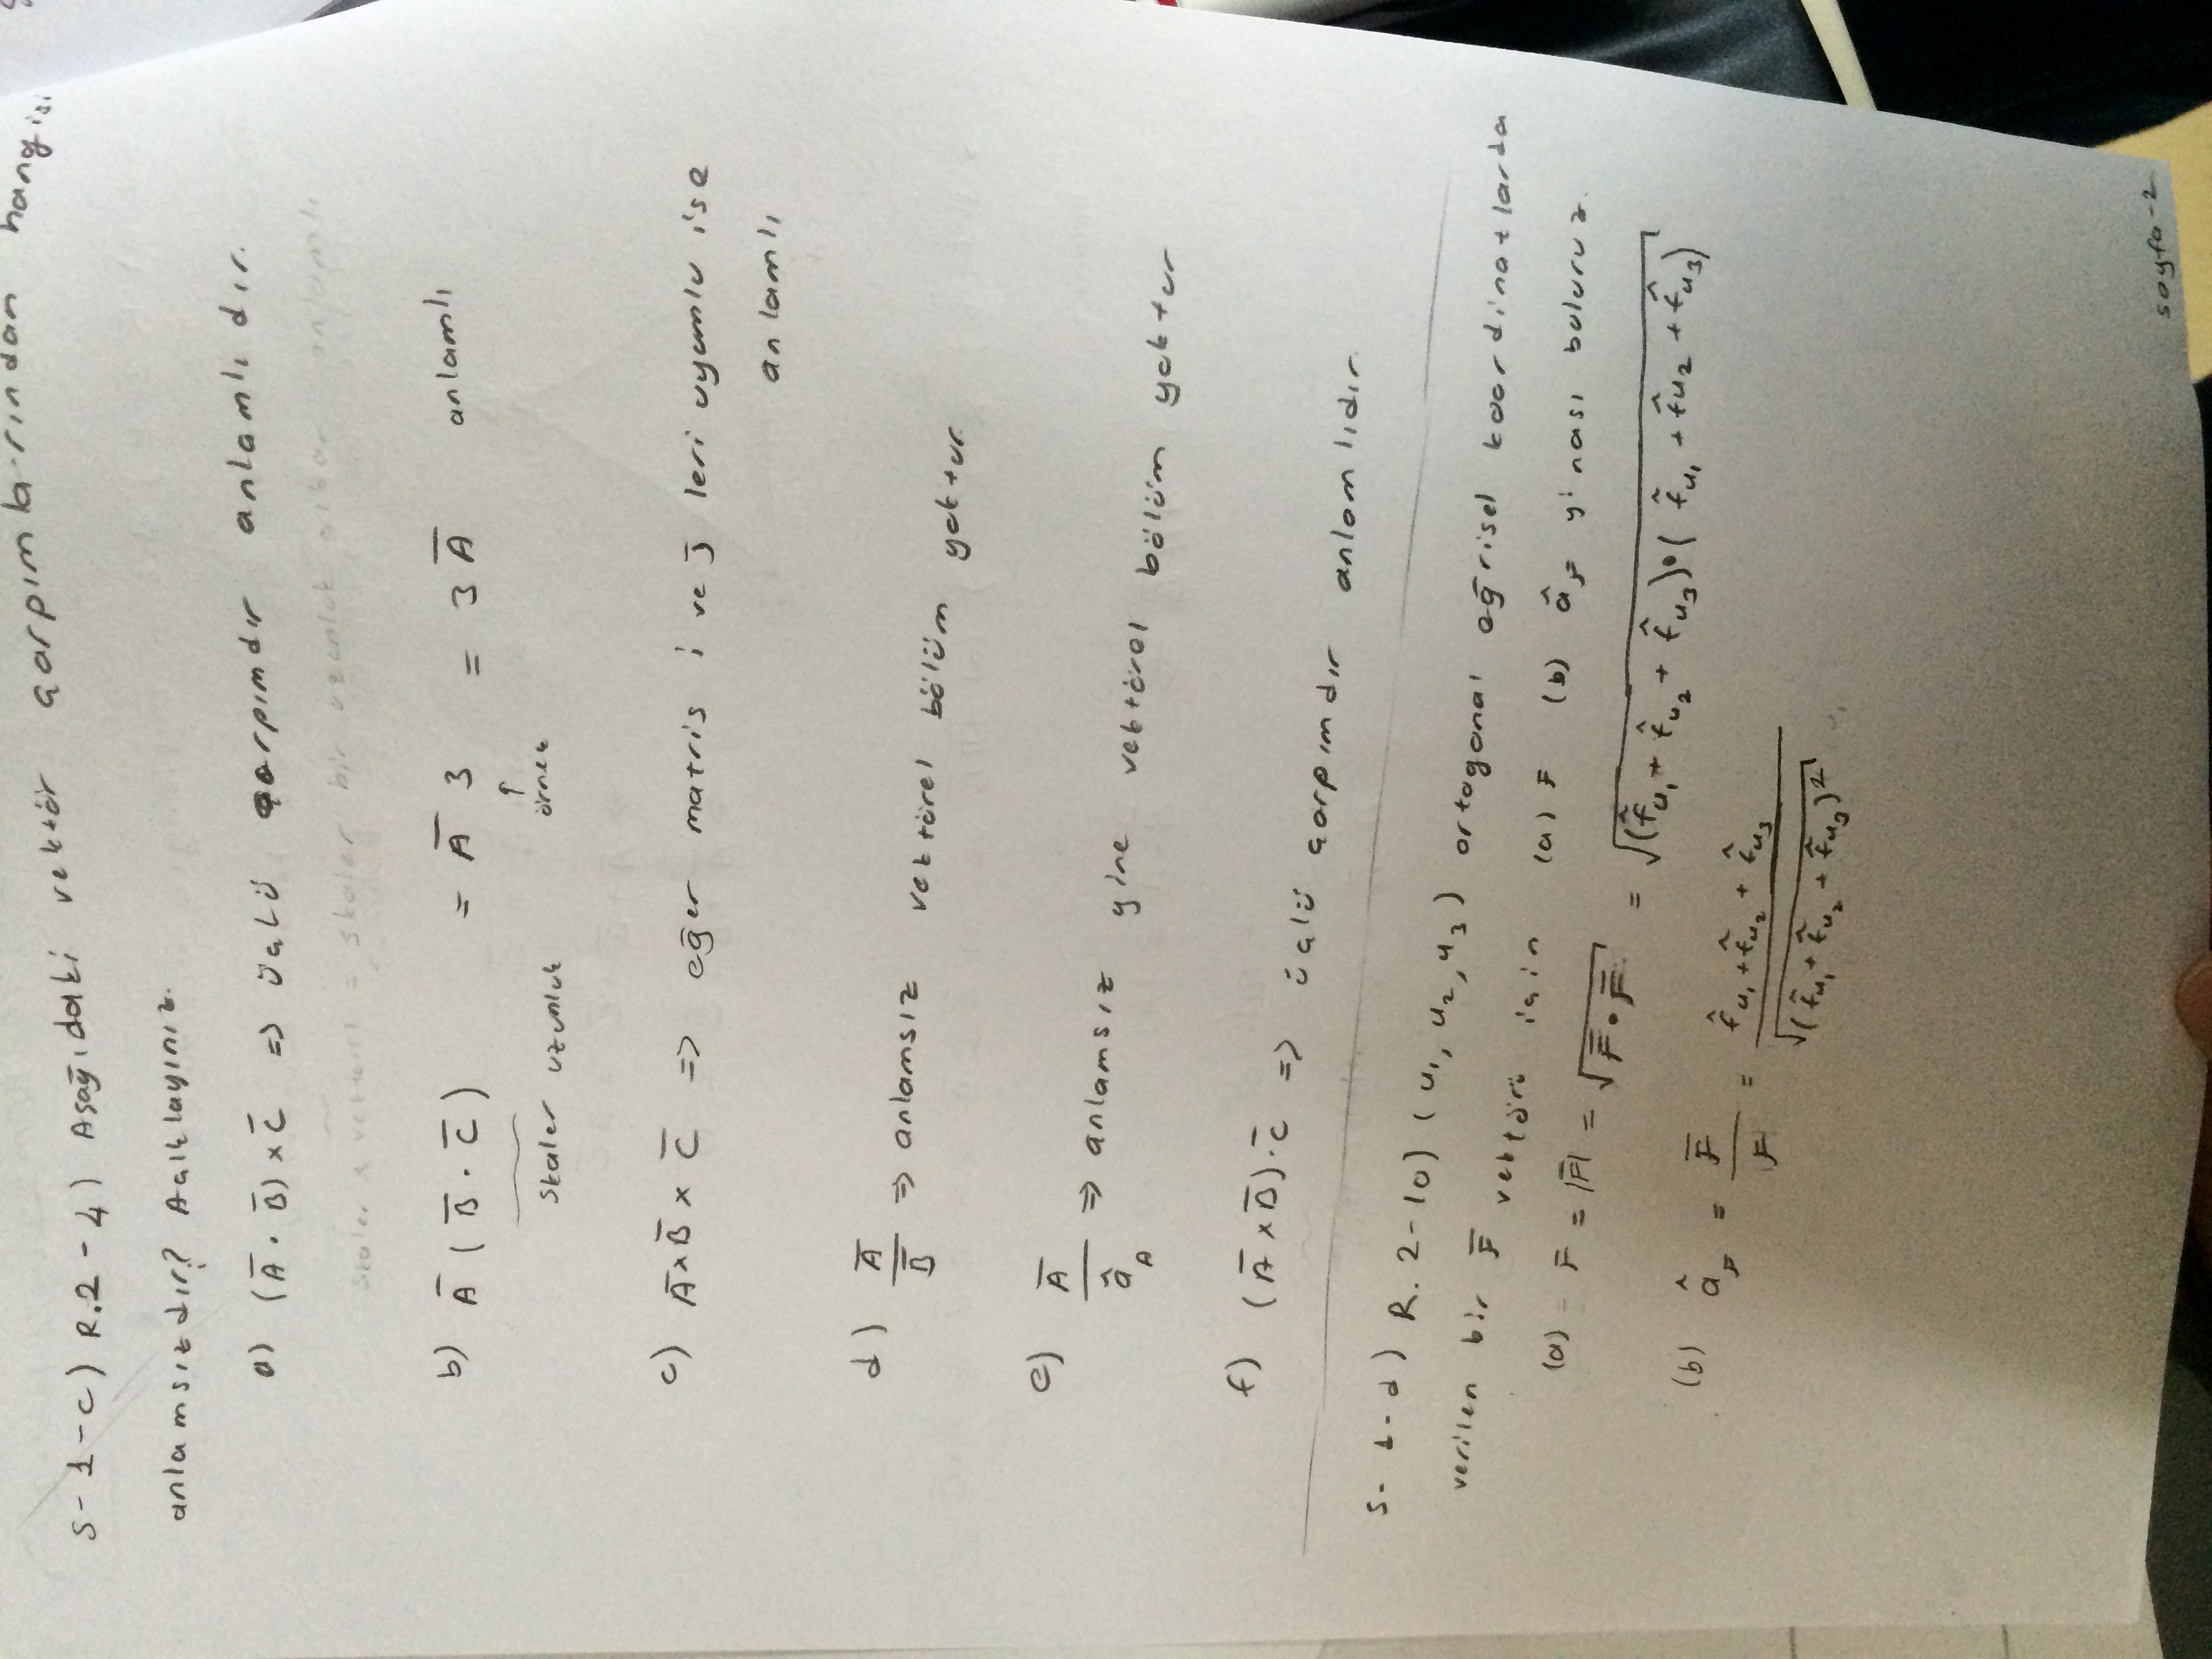 S-1-c) R.2-4) Aşağıdaki vektör çarpımlarından hangisi
anlamsızdır? Açıklayınız.
a) (A̅ . B̅) x C̅ => üçlü çarpımdır anlamlıdır.
skaler x vektörel = skaler bir uzunluk çıkar anlamlı
b) A̅ ( B̅ . C̅ ) = A̅ 3 = 3 A̅ anlamlı
skaler uzunluk ↑ örnek
c) A̅ x B̅ x C̅ => eğer matris i ve j leri uyumlu ise
anlamlı
d) A̅ / B̅ => anlamsız vektörel bölüm yoktur
e) A̅ / â_A => anlamsız yine vektörel bölüm yoktur
f) (A̅ x B̅) . C̅ => üçlü çarpımdır anlamlıdır.
S-1-d) R.2-10) (u₁, u₂, u₃) ortogonal eğrisel koordinatlarda
verilen bir F̅ vektörü için (a) F (b) â_F yi nası buluruz.
(a) - F = |F̅| = √(F̅ • F̅) = √((f̂u₁ + f̂u₂ + f̂u₃) • (f̂u₁ + f̂u₂ + f̂u₃))
(b) â_F = F̅ / F = (f̂u₁ + f̂u₂ + f̂u₃) / √((f̂u₁ + f̂u₂ + f̂u₃)²)
sayfa-2